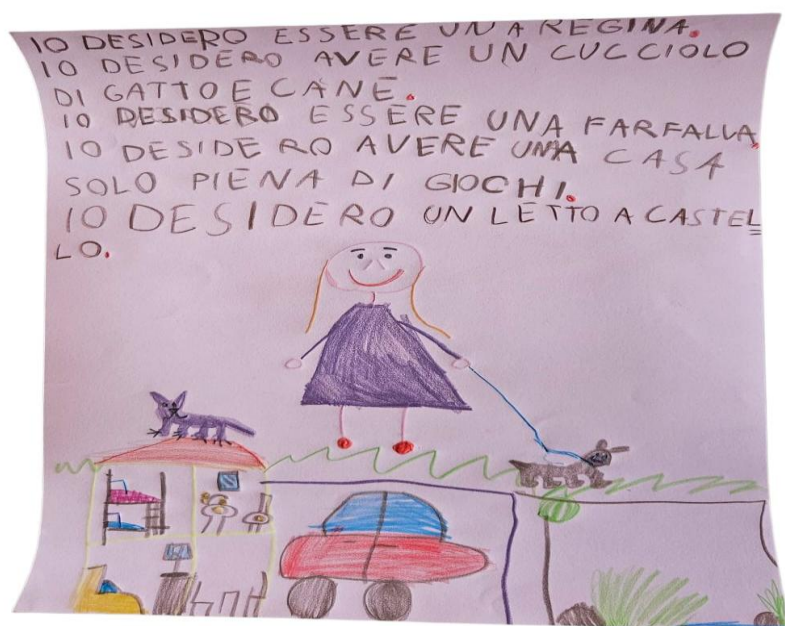 IO DESIDERO ESSERE UNA REGINA.
IO DESIDERO AVERE UN CUCCIOLO
DI GATTO E CANE.
IO DESIDERO ESSERE UNA FARFALLA.
IO DESIDERO AVERE UNA CASA
SOLO PIENA DI GIOCHI.
IO DESIDERO UN LETTO A CASTEL
LO.